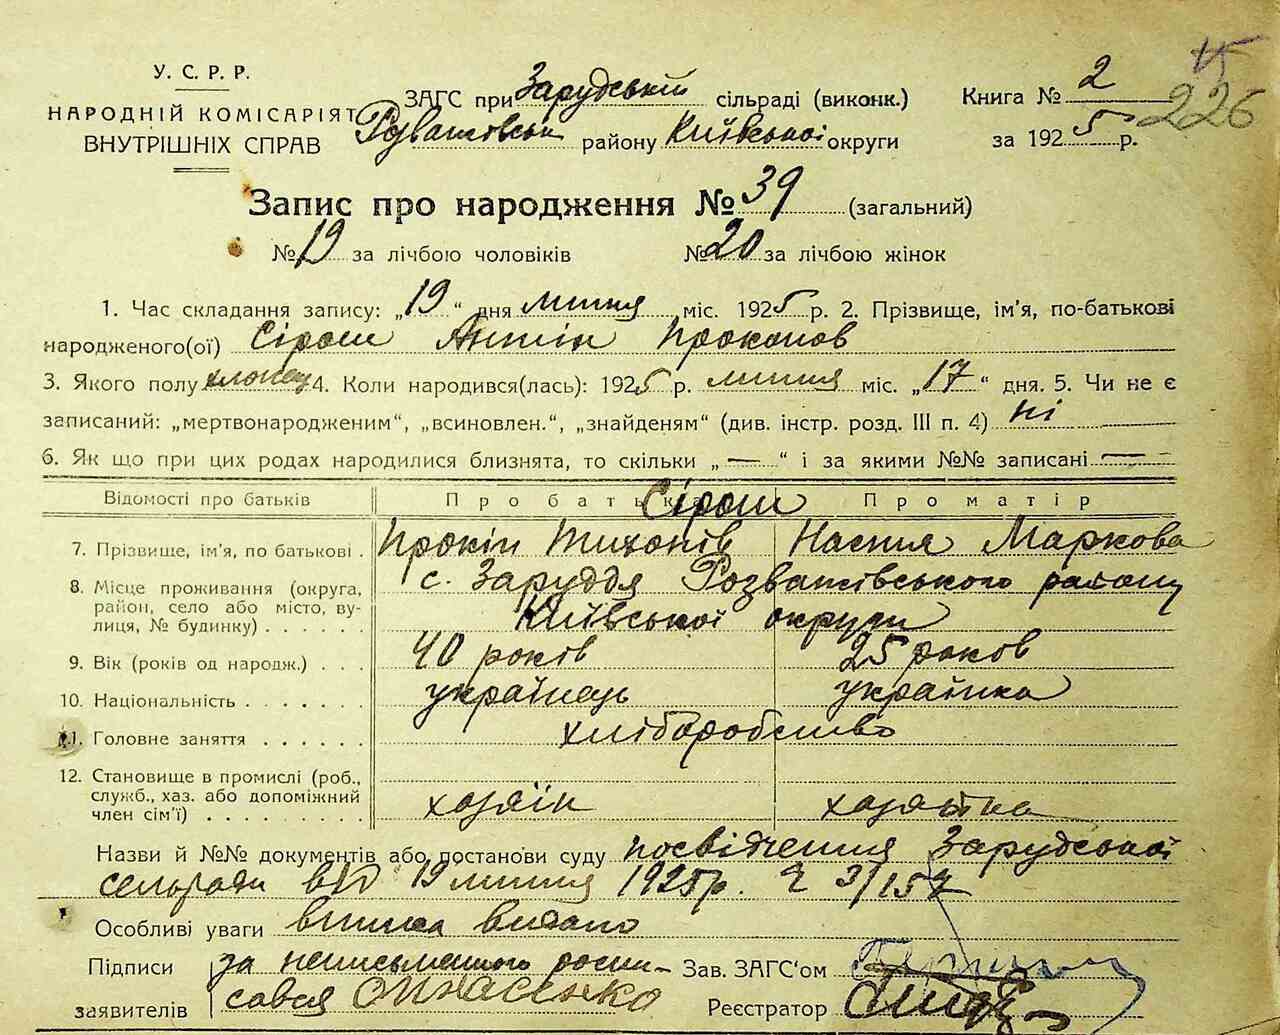 У. С. Р. Р.
НАРОДНІЙ КОМІСАРІЯТ
ВНУТРІШНІХ СПРАВ
ЗАГС при Зарудській сільраді (виконк.)
Розважівськ району Київської округи
Книга № 2
226
за 1925 р.
Запис про народження № 39 (загальний)
№ 19 за лічбою чоловіків № 20 за лічбою жінок
1. Час складання запису: „19“ дня липня міс. 1925 р. 2. Прізвище, ім'я, по-батькові
народженого(ої) Сірош Антін Прокопов
3. Якого полу хлопец 4. Коли народився(лась): 1925 р. липня міс. „17“ дня. 5. Чи не є
записаний: „мертвонародженим“, „всиновлен.“, „знайденям“ (див. інстр. розд. III п. 4) ні
6. Як що при цих родах народилися близнята, то скільки „—“ і за якими №№ записані —
Відомості про батьків Про батька Про матір
Сірош
7. Прізвище, ім'я, по батькові . Прокіп Тихонів Настя Маркова
8. Місце проживання (округа, район, село або місто, вулиця, № будинку) . . . . . . с. Заруддя Розважівського району
Київської округи
9. Вік (років од народж.) . . . 40 років 25 років
10. Національність . . . . . . . українець українка
11. Головне заняття . . . . . . хліборобство
12. Становище в промислі (роб., служб., хаз. або допоміжний член сім'ї) . . . . . . . . хазяїн хазяйка
Назви й №№ документів або постанови суду посвідчення Зарудської
сельради від 19 липня 1925 р. Ч 3/157
Особливі уваги виписа видано
Підписи
заявителів
за неписьменного роспи-
сався Опанасенко
Зав. ЗАГС'ом
Реєстратор